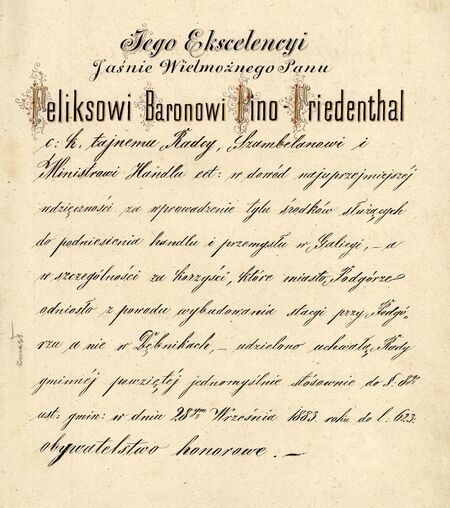 Jego Ekscelencyi
Jaśnie Wielmożnego Panu
Feliksowi Baronowi Pino-Friedenthal
c: k. tajnemu Radcy, Szambelanowi i
Ministrowi Handlu ect: w dowód najuprzejmiejszej
wdzięczności za wprowadzenie tylu środków służących
do podniesienia handlu i przemysłu w Galicyi, – a
w szczególności za korzyści, które miasto Podgórze
odniosło z powodu wybudowania stacyi przy Podgó-
rzu a nie w Dębnikach, – udzielono uchwałą Rady
gminnéj powziętéj jednomyślnie stosownie do §: 8go
ust: gmin: w dniu 28ym Września 1883 roku do l: 623
obywatelstwo honorowe. –